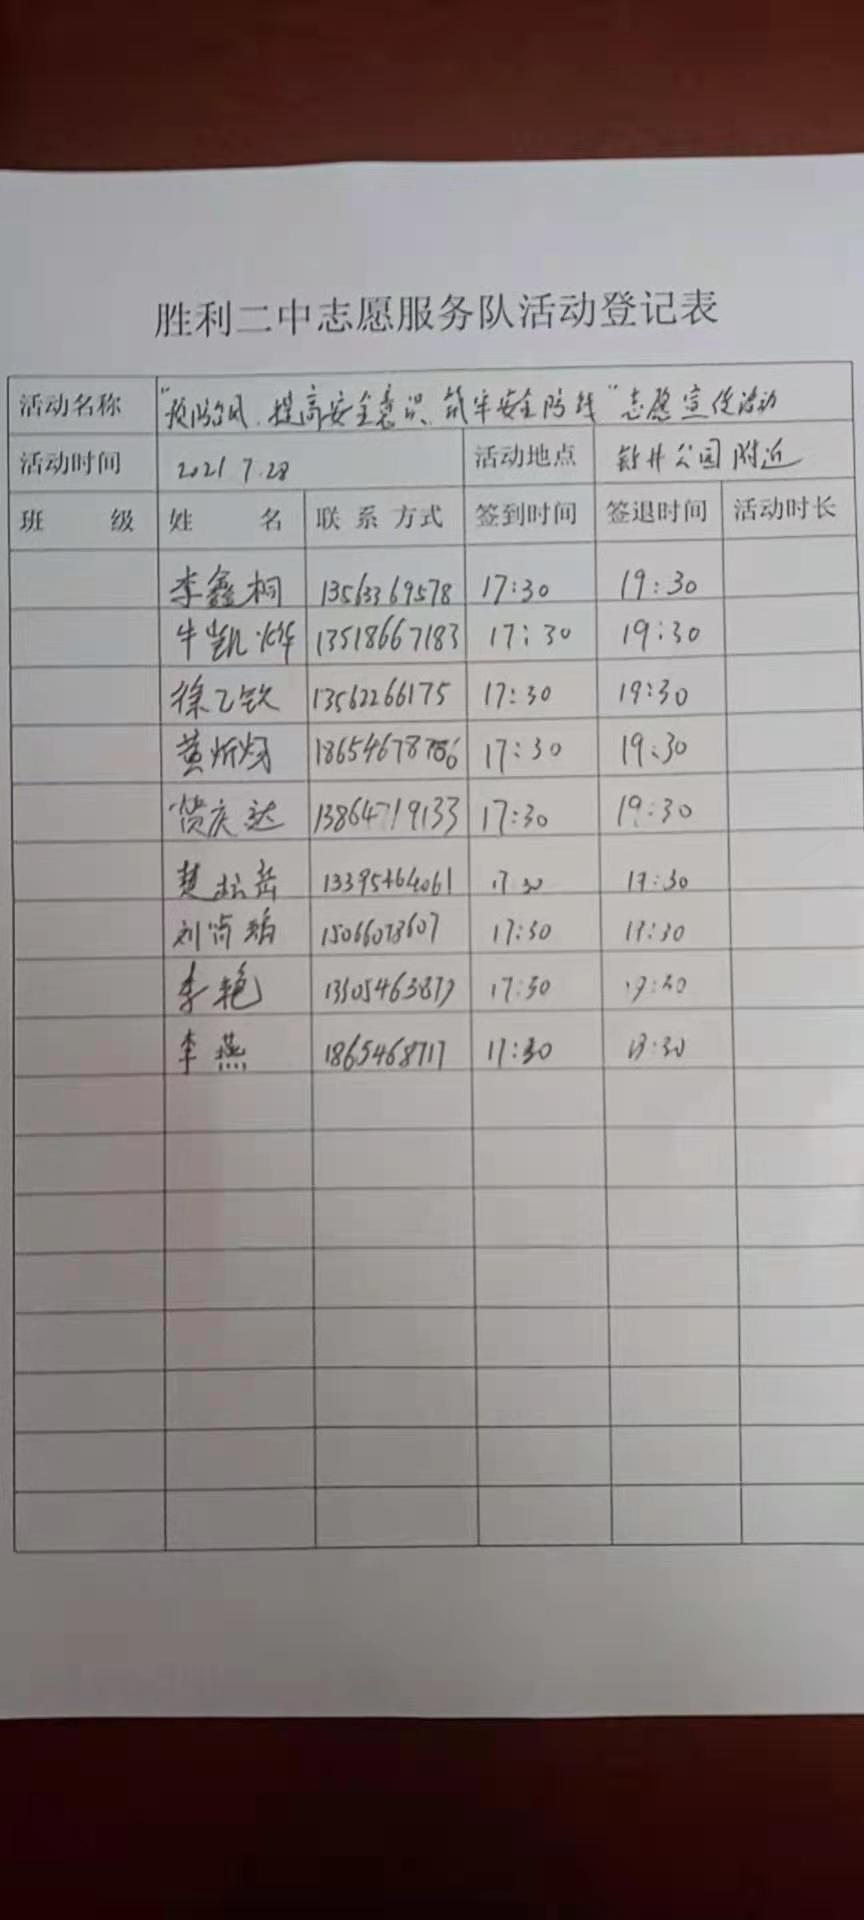 胜利二中志愿服务队活动登记表
活动名称 "预防台风、提高安全意识、筑牢安全防线"志愿宣传活动
活动时间 2021 7.28 活动地点 钻井公园附近
班 级 姓 名 联 系 方式 签到时间 签退时间 活动时长
李鑫桐 13563369578 17:30 19:30
牛凯烨 13518667183 17:30 19:30
徐乙钦 13562266175 17:30 19:30
黄炘炀 17:30 19:30
贺庆达 13864719133 17:30 19:30
楚松岳 13395464061 17 30 19:30
刘尚 15066078607 17:30 19:30
李艳 13505463879 17:30 19:30
李燕 1865468717 17:30 19:30